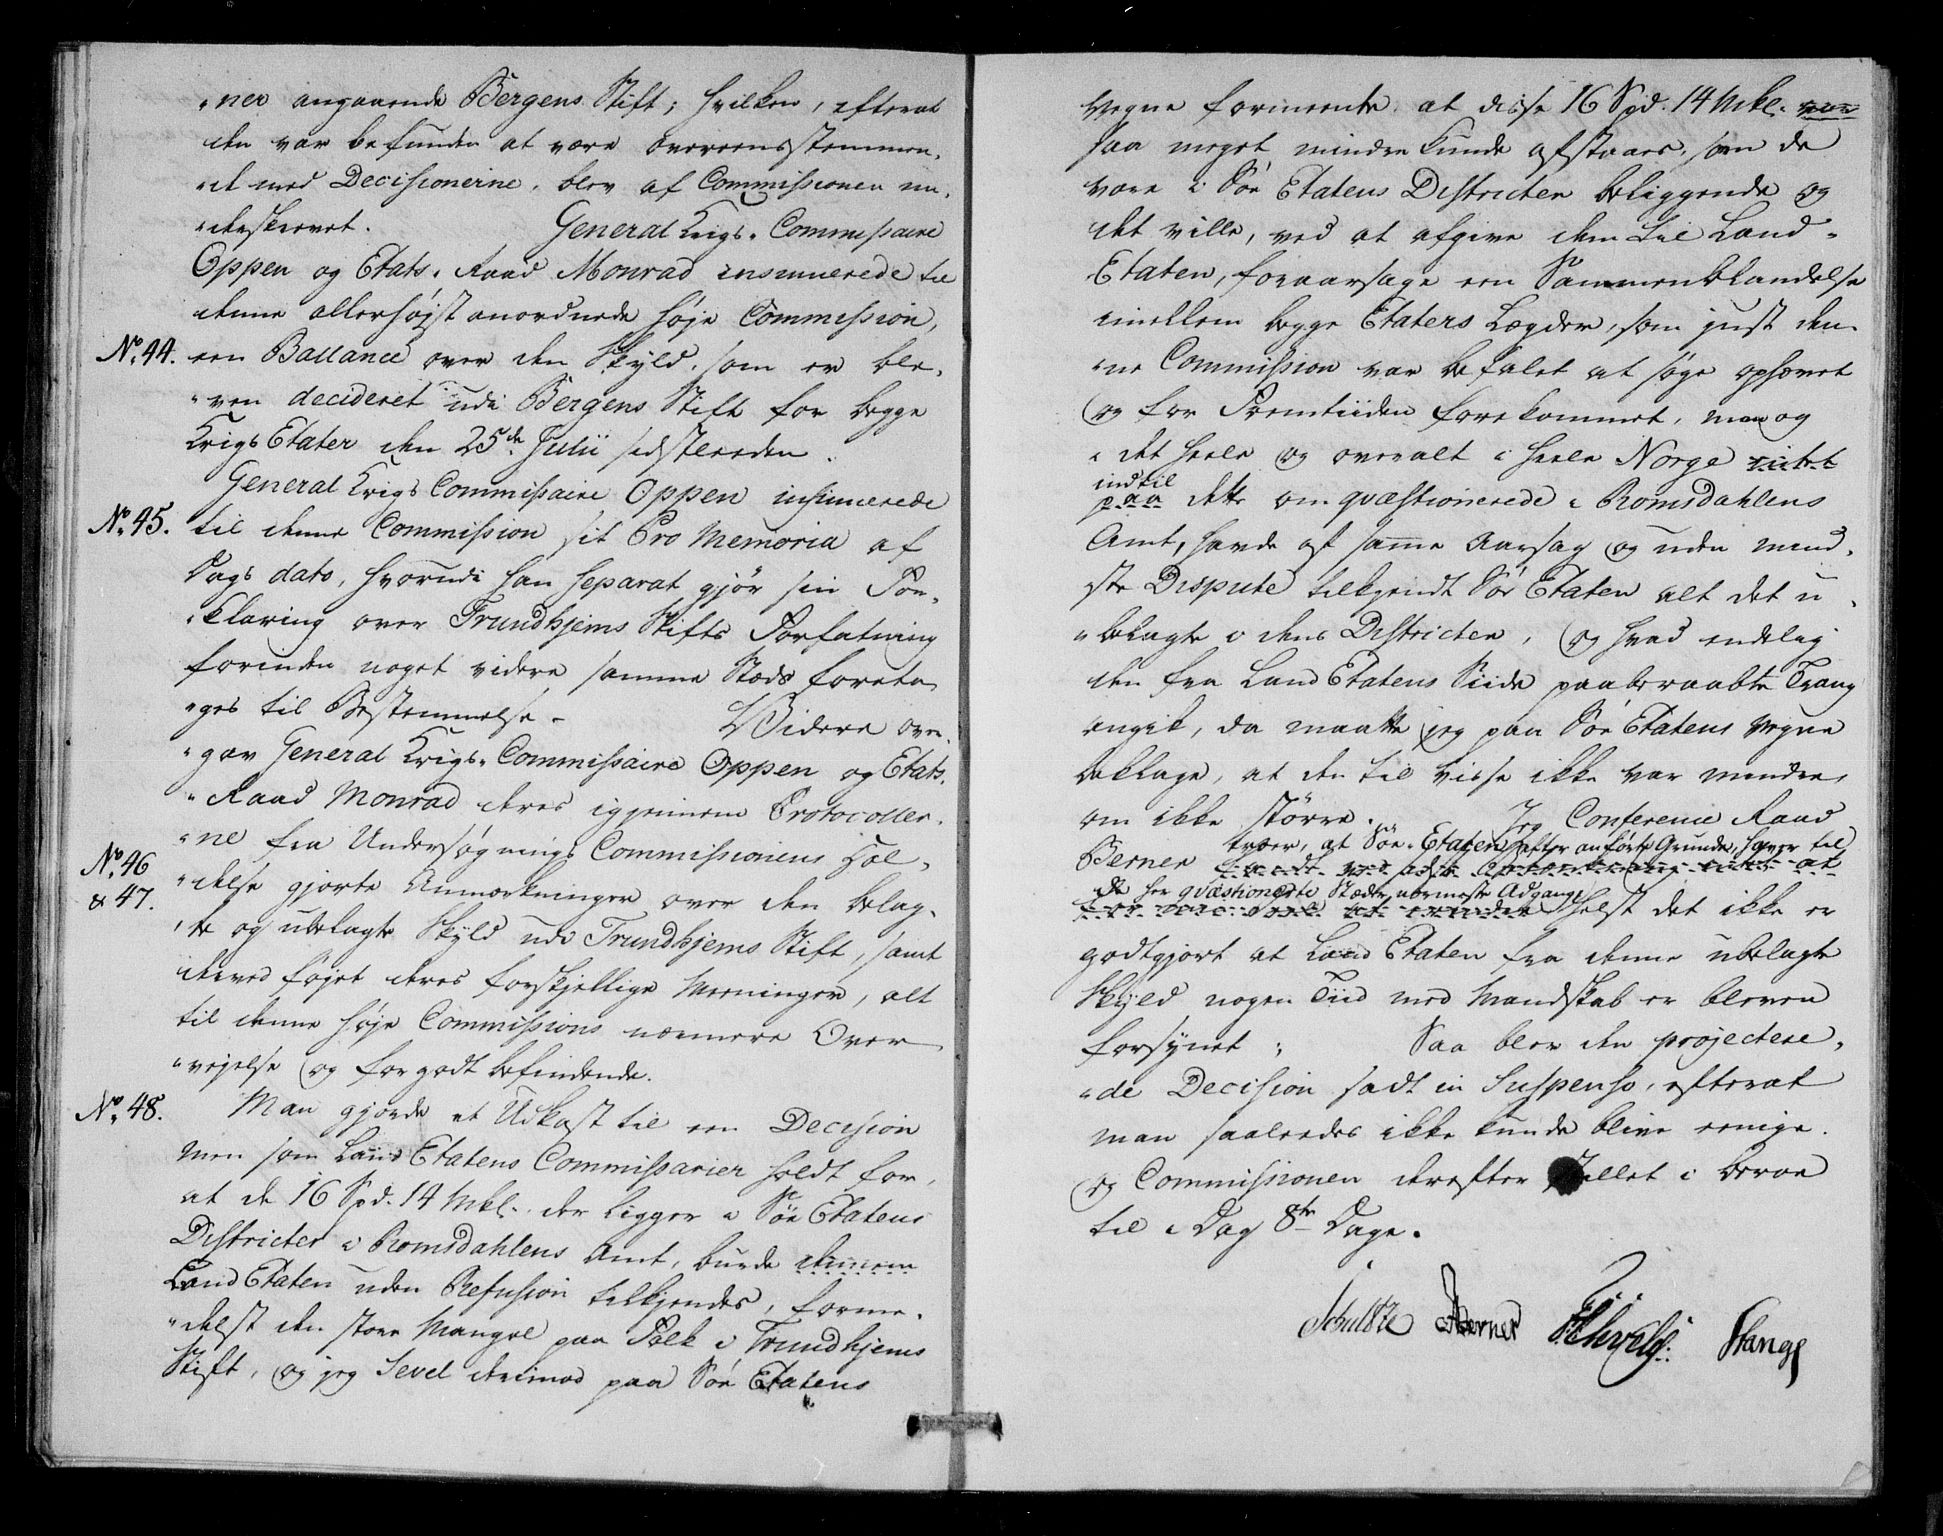 "ner angaaende Bergens Stift; hvilken, efterat
den var befunden at være overeensstemmen,
"de med Decisionerne, blev af Commissionen un,
"derskrevet. General Krigs, Commissaire
Oppen og Etats, Raad Monrad insinuerede til
denne allerhøjst anordnede høje Commission,
No. 44. een Ballance over den Skyld, som er ble,
"ven decideret udi Bergens Stift for begge
Krigs Etater den 25de Julii sidstleeden.
General Krigs Commissaire Oppen insinuerede
No. 45. til denne Commission sit Pro Memoria af
Dags dato, hvorudi han separat gjör sin For,
"klaring over Trundhjems Stifts Forfatning
forinden noget videre samme Stæds foreta
"ges til Bestemmelse. Widere over,
"gav General Krigs, Commissaire Oppen og Etats,
"Raad Monrad deres igjennem Protocoller,
"ne fra Undersøgnings Commissionens Hol,
No. 46 & 47. "delse gjorte Anmærkninger over den belag,
"te og ubelagte Skyld udi Trundhjems Stift, samt
derved føjet deres forskjellige Meeninger, alt
til denne høje Commissions nærmere Over
"vejelse og forgodtbefindende.
No. 48. Man gjorde et Udkast til een Decision
men som Land Etatens Commissarier holdt for,
at de 16 Spd. 14 Mkl. der ligger i Söe Etatens
Districter i Romsdahlens Amt, burde
Land Etaten uden Refusion tilkjendes, forme,
"delst den store Mangel paa Folk i Trundhjems
Stift, og jeg Sevel derimod paa Söe Etatens
Vegne formeente, at disse 16 Spd. 14 Mkl. var
saa meget mindre kunde afstaaes, som de
vare i Söe Etatens Districter beliggende og
det ville, ved at afgive dem til Land-
Etaten, foraarsage een Sammenblandelse
imellem begge Etaters Lægder, som just den
"ne Commission var befalet at søge ophævet
og for Fremtiiden forekommet, man og
i det heele og overalt i heele Norge intet
indtil
paa dette omqvæstionerede i Romsdahlens
Amt, havde af samme Aarsag og uden mind,
ste Dispute tilkjendt Söe Etaten alt det u,
"belagte i dens Districter, og hvad endelig
den fra Land Etatens Siide paaberaabte Trang
angik, da maatte jeg paa Söe Etatens Vegne
beklage, at den til visse ikke var mindre,
om ikke större. Jeg Conference Raad
troer, at Söe-Etaten efter anførte Grunde, haver til
Berner
de her qvæstionerte Stæder nærmeste Adgang,
helst det ikke er
godtgjort at Land Etaten fra denne ubelagte
Skyld nogen Tiid med Mandskab er bleven
forsynet; Saa blev den projectere,
"de Decision sadt in Suspenso, efterat
man saaleedes ikke kunde blive eenige.
og Commissionen derefter stillet i beroe
til i Dag 8te Dage.
Schultze Berner Stange